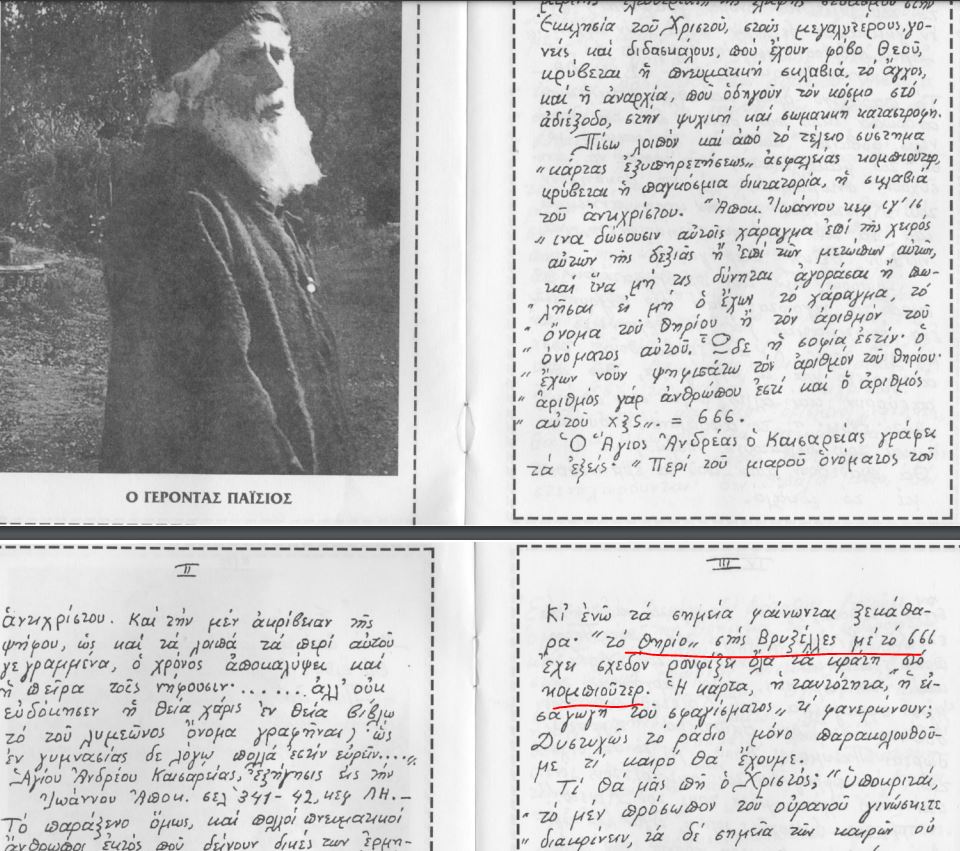 Ο ΓΕΡΟΝΤΑΣ ΠΑΪΣΙΟΣ
Ἐκκλησία τοῦ Χριστοῦ, στούς μεγαλυτέρους, γο-
νεῖς καί διδασκάλους, πού ἔχουν φόβο Θεοῦ,
κρύβεται ἡ πνευματική σκλαβιά, τό ἄγχος,
καί ἡ ἀναρχία, πού ὁδηγοῦν τόν κόσμο στό
ἀδιέξοδο, στήν ψυχική καί σωματική καταστροφή.
Πίσω λοιπόν καί ἀπό τό τέλειο σύστημα
"κάρτας ἐξυπηρετήσεως„ ἀσφαλείας κομπιούτερ,
κρύβεται ἡ παγκόσμια δικτατορία, ἡ σκλαβιά
τοῦ ἀντιχρίστου. "Ἀποκ. Ἰωάννου κεφ ιγ' 16
„ ινα δώσουσιν αὐτοῖς χάραγμα ἐπί τῆς χειρός
αὐτῶν τῆς δεξιᾶς ἤ ἐπί τῶν μετώπων αὐτῶν,
καί ἵνα μή τις δύνηται ἀγοράσαι ἤ πω-
" λῆσαι εἰ μή ὁ ἔχων τό χάραγμα, τό
" ὄνομα τοῦ θηρίου ἤ τόν ἀριθμόν τοῦ
" ὀνόματος αὐτοῦ. Ὧδε ἡ σοφία ἐστίν· ὁ
" ἔχων νοῦν ψηφισάτω τόν ἀριθμόν τοῦ θηρίου·
" ἀριθμός γάρ ἀνθρώπου ἐστί καί ὁ ἀριθμός
" αὐτοῦ χξς„. = 666.
Ὁ Ἅγιος Ἀνδρέας ὁ Καισαρείας γράφει
τά ἑξεῖς· " Περί τοῦ μιαροῦ ὀνόματος τοῦ
II
ἀντιχρίστου. Καί τήν μέν ἀκρίβειαν τῆς
ψήφου, ὡς καί τά λοιπά τά περί αὐτοῦ
γεγραμμένα, ὁ χρόνος ἀποκαλύψει καί
ἡ πεῖρα τοῖς νήφουσιν·....... ἀλλ' οὐκ
εὐδόκησεν ἡ θεία χάρις ἐν θεία βίβλω
τό τοῦ λυμεῶνος ὄνομα γραφῆναι, ὡς
ἐν γυμνασίας δε λόγω πολλά ἐστίν εὑρεῖν....„
Ἁγίου Ἀνδρέου Καισαρείας, ἐξήγησις εἰς τήν
Ἰωάννου Ἀποκ. σελ 341-42, κεφ ΛΗ.—
Τό παράξενο ὅμως, καί πολλοί πνευματικοί
ἄνθρωποι ἐκτός πού δείνουν δικές των ἑρμη-
III
Κι' ἐνῶ τά σημεία φαίνωνται ξεκάθα-
ρα· "τό θηρίο„ στής Βρυξέλλες μέ τό 666
ἔχει σχεδόν ρουφίξει ὅλα τά κράτη στό
κομπιοῦτερ. Ἡ κάρτα, ἡ ταυτότητα, "ἡ εἰ-
σαγωγή τοῦ σφαγίσματος„ τι φανερωνουν;
Δυστυχῶς τό ράδιο μόνο παρακολουθοῦ-
με τι καιρό θά ἔχουμε.
Τί θά μᾶς πῆ ὁ Χριστός; "ὑποκριταί,
" τό μέν πρόσωπον τοῦ οὐρανοῦ γινώσκετε
" διακρίνειν, τά δέ σημεία τῶν καιρῶν οὐ